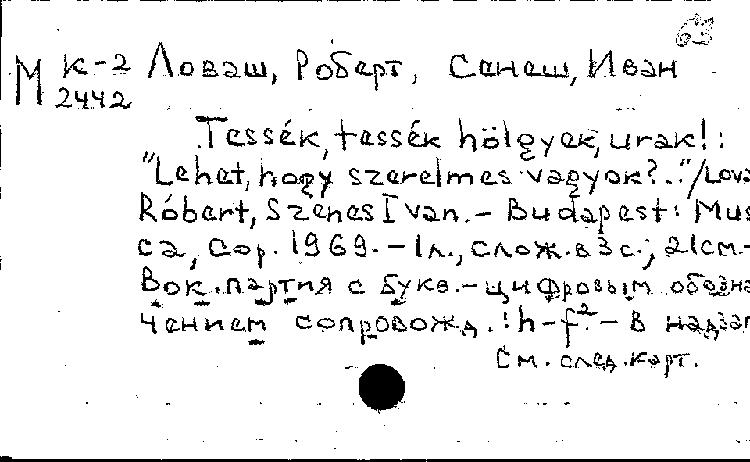 М К-2 Ловаш, Роберт, Сенеш, Иван
2442
Tessék, tessék hölgyek, urak!:
"Lehet, hogy szerelmes vagyok?.."/Lova
Róbert, Szenes Ivan.- Budapest: Mus
ca, cop. 1969. - 1л., слож. в 3 с.; 21см.-
Вок. партия с букв.-цифровым обозна
чением сопровожд.: h-f².- В надзаг
См. след. карт.